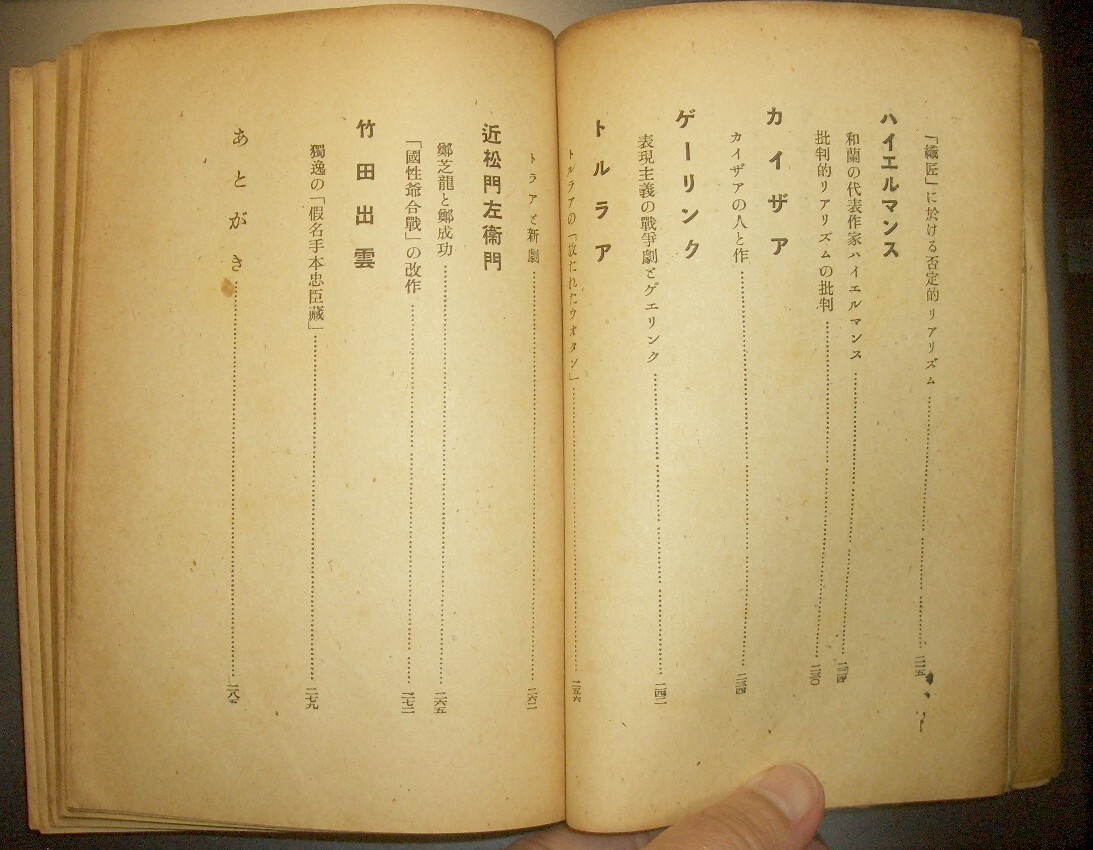 「織匠」に於ける否定的リアリズム……二一五
ハイエルマンス
和蘭の代表作家ハイエルマンス……二二四
批判的リアリズムの批判……二三〇
カイザア
カイザアの人と作……二三四
ゲーリンク
表現主義の戰爭劇とゲエリンク……二四二
トルラア
トルラアの「放たれたウオタン」……二五六
トラアと新劇……二六二
近松門左衞門
鄭芝龍と鄭成功……二六五
「國性爺合戰」の改作……二七二
竹田出雲
獨逸の「假名手本忠臣藏」……二七九
あとがき……